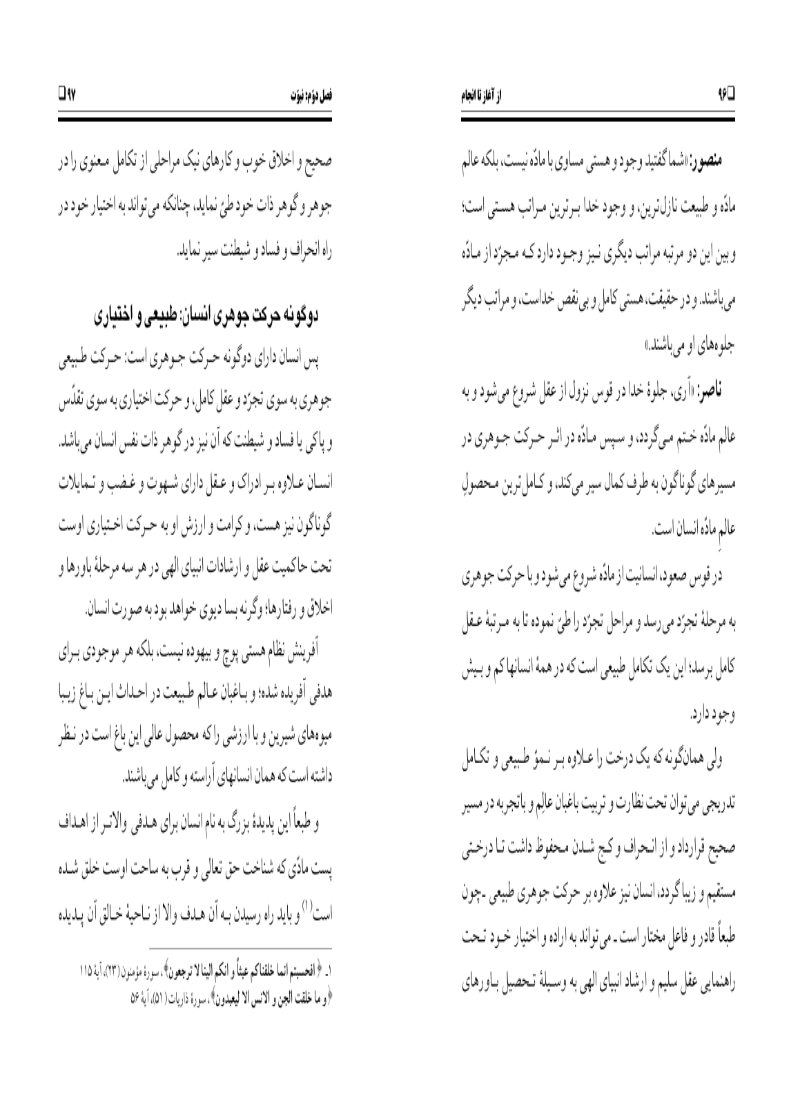 ۹۶ از آغاز تا انجام
منصور: «شما گفتید وجود و هستی مساوی با مادّه نیست، بلکه عالم
مادّه و طبیعت نازل‌ترین، و وجود خدا برترین مراتب هستی است؛
و بین این دو مرتبه مراتب دیگری نیز وجود دارد که مجرّد از مادّه
می‌باشند. و در حقیقت، هستی کامل و بی‌نقص خداست، و مراتب دیگر
جلوه‌های او می‌باشند.»
ناصر: «آری، جلوۀ خدا در قوس نزول از عقل شروع می‌شود و به
عالم مادّه ختم می‌گردد، و سپس مادّه در اثر حرکت جوهری در
مسیرهای گوناگون به طرف کمال سیر می‌کند، و کامل‌ترین محصولِ
عالمِ مادّه انسان است.
در قوس صعود، انسانیت از مادّه شروع می‌شود و با حرکت جوهری
به مرحلۀ تجرّد می‌رسد و مراحل تجرّد را طیّ نموده تا به مرتبۀ عقل
کامل برسد؛ این یک تکامل طبیعی است که در همۀ انسانها کم و بیش
وجود دارد.
ولی همان‌گونه که یک درخت را علاوه بر نموّ طبیعی و تکامل
تدریجی می‌توان تحت نظارت و تربیت باغبان عالِم و باتجربه در مسیر
صحیح قرارداد و از انحراف و کج شدن محفوظ داشت تا درختی
مستقیم و زیبا گردد، انسان نیز علاوه بر حرکت جوهری طبیعی ـ‌چون
طبعاً قادر و فاعل مختار است ـ می‌تواند به اراده و اختیار خود تحت
راهنمایی عقل سلیم و ارشاد انبیای الهی به وسیلۀ تحصیل باورهای
فصل دوّم: نبوّت ۹۷
صحیح و اخلاق خوب و کارهای نیک مراحلی از تکامل معنوی را در
جوهر و گوهر ذات خود طیّ نماید، چنانکه می‌تواند به اختیار خود در
راه انحراف و فساد و شیطنت سیر نماید.
دوگونه حرکت جوهری انسان: طبیعی و اختیاری
پس انسان دارای دوگونه حرکت جوهری است: حرکت طبیعی
جوهری به سوی تجرّد و عقل کامل، و حرکت اختیاری به سوی تقدّس
و پاکی یا فساد و شیطنت که آن نیز در گوهر ذات نفس انسان می‌باشد.
انسان علاوه بر ادراک و عقل دارای شهوت و غضب و تمایلات
گوناگون نیز هست، و کرامت و ارزش او به حرکت اختیاری اوست
تحت حاکمیت عقل و ارشادات انبیای الهی در هر سه مرحلۀ باورها و
اخلاق و رفتارها؛ وگرنه بسا دیوی خواهد بود به صورت انسان.
آفرینش نظام هستی پوچ و بیهوده نیست، بلکه هر موجودی برای
هدفی آفریده شده؛ و باغبان عالم طبیعت در احداث این باغ زیبا
میوه‌های شیرین و با ارزشی را که محصول عالی این باغ است در نظر
داشته است که همان انسانهای آراسته و کامل می‌باشند.
و طبعاً این پدیدۀ بزرگ به نام انسان برای هدفی والاتر از اهداف
پست مادّی که شناخت حق تعالی و قرب به ساحت اوست خلق شده
است(۱) و باید راه رسیدن به آن هدف والا از ناحیۀ خالق آن پدیده
۱ـ ﴿افحسبتم انما خلقناکم عبثاً و انکم الینا لا ترجعون﴾، سورۀ مؤمنون (۲۳)، آیۀ ۱۱۵
﴿و ما خلقت الجن و الانس الا لیعبدون﴾، سورۀ ذاریات (۵۱)، آیۀ ۵۶